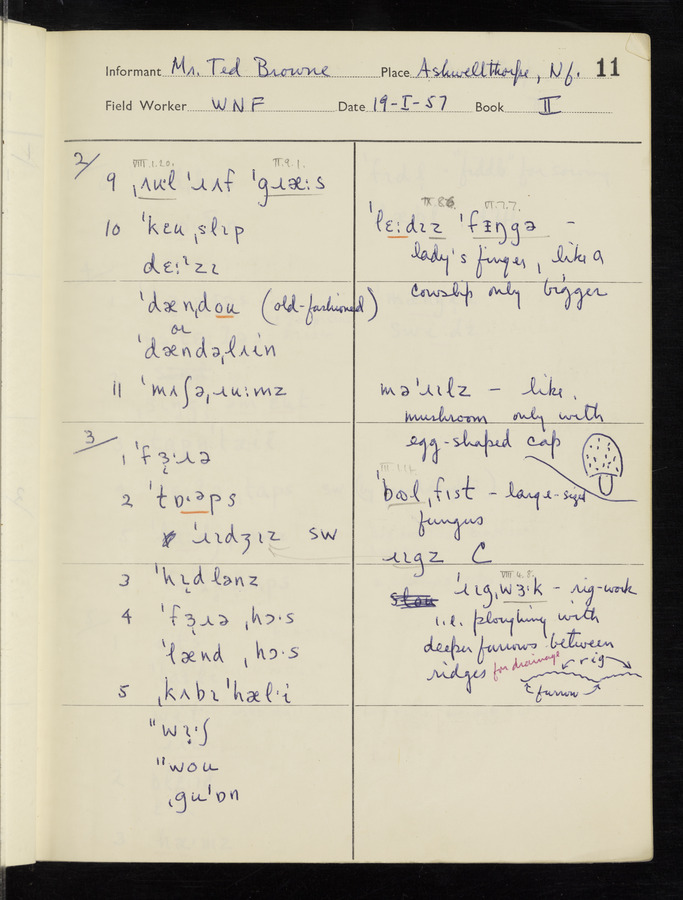 Informant Mr. Ted Browne Place Ashwellthorpe, Nf. 11
Field Worker WNF Date 19-I-57 Book II
2/
VIII.1.20. II.9.1.
9 ˌɹuːl ˈɹɪf ˈgɹæːs
10 ˈkɛuˌslɪp
dɛːˈzɪ
ˈdænˌdou (old-fashioned)
or
ˈdændəˌlɪin
11 ˈmʌʃəˌɹuːmz
3/
1 ˈfɜɹə
2 ˈtɒˑəps
ˈɹɪdʒɪz SW
3 ˈhɪdlənz
4 ˈfɜɹə ˌhɔˑs
ˈlænd ˌhɔˑs
5 ˌkʌbɪ ˈhælˑi
"wɜˑʃ
"wou
ˌguˈɒn
VI.7.7.
ˈlɛːdɪz ˈfɪŋgə –
lady's finger, like a
cowslip only bigger
məˈɹɪlz – like
mushroom only with
egg-shaped cap
ˈbolˌfɪst – large-sized
fungus
ɹɪgz C
VIII.4.8.
ˈɹɪgˌwɜˑk – rig-work
i.e. ploughing with
deeper furrows between
ridges for drainage
rig
furrow